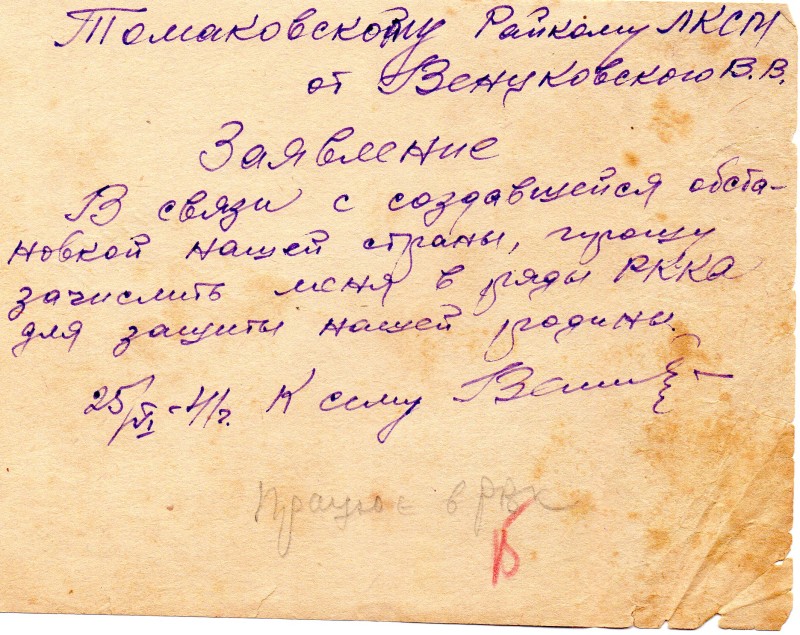 Томаковскому Райкому ЛКСМ
от Венуковского В. В.
Заявление
В связи с создавшейся обста-
новкой нашей страны, прошу
зачислить меня в ряды РККА
для защиты нашей родины.
25/VI-41г. К сему
Працює в РВК
Б